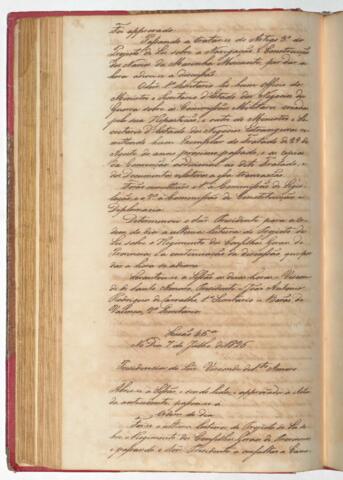 Foi approvado.
Passando a tratar-se do Artigo 3º do
Projecto de Lei sobre a Navegação, e Construcção
dos Navios da Marinha Mercante, por dar a
hora adiou-se a discussão.
O Snr 1º Secretario leo hum officio do
Ministro e Secretario d'Estado dos Negocios da
Guerra sobre a Commissão Militar creada
pela sua Repartição, e outro do Ministro e Se-
cretario d'Estado dos Negocios Estrangeiros re-
mettendo hum Exemplar do Tratado de 29 de
Agosto do anno proximo passado, e as copias
da Convenção addicional ao dito Tratado, e
dos Documentos relativos
á Commissão de Legis-
lação, e o 2º á Commissão de Constituição e
Diplomacia.
Determinou o Snr Presidente para a Or-
dem do dia a ultima leitura do Projecto de
Lei sobre o Regimento dos Conselhos Geraes de
Provincia, e a continuação da discussão que por
dar a hora se adiara.
Levantou-se a Sessão ás duas horas = Viscon-
de de Santo Amaro, Presidente = João Antonio
Rodrigues de Carvalho, 1º Secretario = Barão de
Valença, 2º Secretario.
Sessão 46ª
No Dia 7 de Julho de 1826
Presidencia do Snr Visconde de Stº Amaro
Abrio-se a Sessão, e sendo lida, e approvada a Acta
da antecedente, passou-se á
Ordem do dia
Fez-se a ultima leitura do Projecto de Lei so-
bre o Regimento dos Conselhos Geraes de Provincia
e passando o Snr Presidente a consultar a Cama-